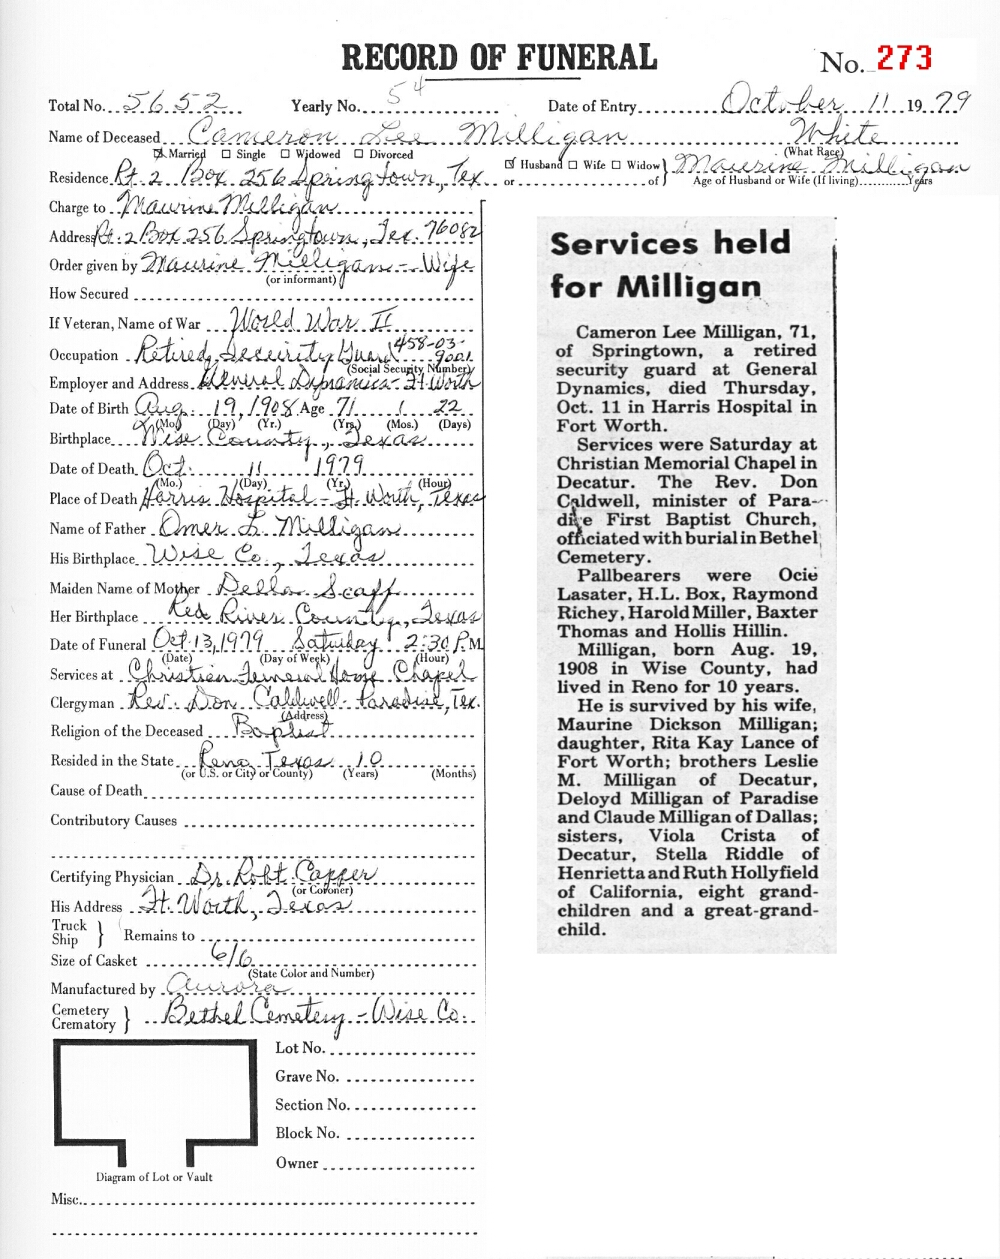 RECORD OF FUNERAL
No. 273
Total No. 5652 Yearly No. 54 Date of Entry October 11 19 79
Name of Deceased Cameron Lee Milligan White
☒ Married ☐ Single ☐ Widowed ☐ Divorced (What Race)
Residence Rt. 2 Box 256 Springtown, Tex or ☑ Husband ☐ Wife ☐ Widow of } Maurine Milligan
Age of Husband or Wife (If living) Years
Charge to Maurine Milligan
Address Rt. 2 Box 256 Springtown, Tex. 76082
Order given by Maurine Milligan - Wife
(or informant)
How Secured
If Veteran, Name of War World War II
Occupation Retired Security Guard 458-03-9001
(Social Security Number)
Employer and Address General Dynamics - Ft Worth
Date of Birth Aug. 19, 1908 Age 71 1 22
(Mo) (Day) (Yr.) (Yrs.) (Mos.) (Days)
Birthplace Wise County, Texas
Date of Death Oct. 11 1979
(Mo.) (Day) (Yr.) (Hour)
Place of Death Harris Hospital - Ft. Worth, Texas
Name of Father Omer L. Milligan
His Birthplace Wise Co., Texas
Maiden Name of Mother Della Scaff
Her Birthplace Red River County, Texas
Date of Funeral Oct. 13, 1979 Saturday 2:30 P.M.
(Date) (Day of Week) (Hour)
Services at Christian Funeral Home Chapel
Clergyman Rev. Don Caldwell - Paradise, Tex.
(Address)
Religion of the Deceased Baptist
Resided in the State Reno, Texas 10
(or U.S. or City or County) (Years) (Months)
Cause of Death
Contributory Causes
Certifying Physician Dr. Robt. Capper
(or Coroner)
His Address Ft. Worth, Texas
Truck
Ship } Remains to
Size of Casket 6/6
(State Color and Number)
Manufactured by Aurora
Cemetery
Crematory } Bethel Cemetery - Wise Co.
Lot No.
Grave No.
Section No.
Block No.
Owner
Diagram of Lot or Vault
Misc.
Services held
for Milligan
Cameron Lee Milligan, 71,
of Springtown, a retired
security guard at General
Dynamics, died Thursday,
Oct. 11 in Harris Hospital in
Fort Worth.
Services were Saturday at
Christian Memorial Chapel in
Decatur. The Rev. Don
Caldwell, minister of Para-
dise First Baptist Church,
officiated with burial in Bethel
Cemetery.
Pallbearers were Ocie
Lasater, H.L. Box, Raymond
Richey, Harold Miller, Baxter
Thomas and Hollis Hillin.
Milligan, born Aug. 19,
1908 in Wise County, had
lived in Reno for 10 years.
He is survived by his wife,
Maurine Dickson Milligan;
daughter, Rita Kay Lance of
Fort Worth; brothers Leslie
M. Milligan of Decatur,
Deloyd Milligan of Paradise
and Claude Milligan of Dallas;
sisters, Viola Crista of
Decatur, Stella Riddle of
Henrietta and Ruth Hollyfield
of California, eight grand-
children and a great-grand-
child.